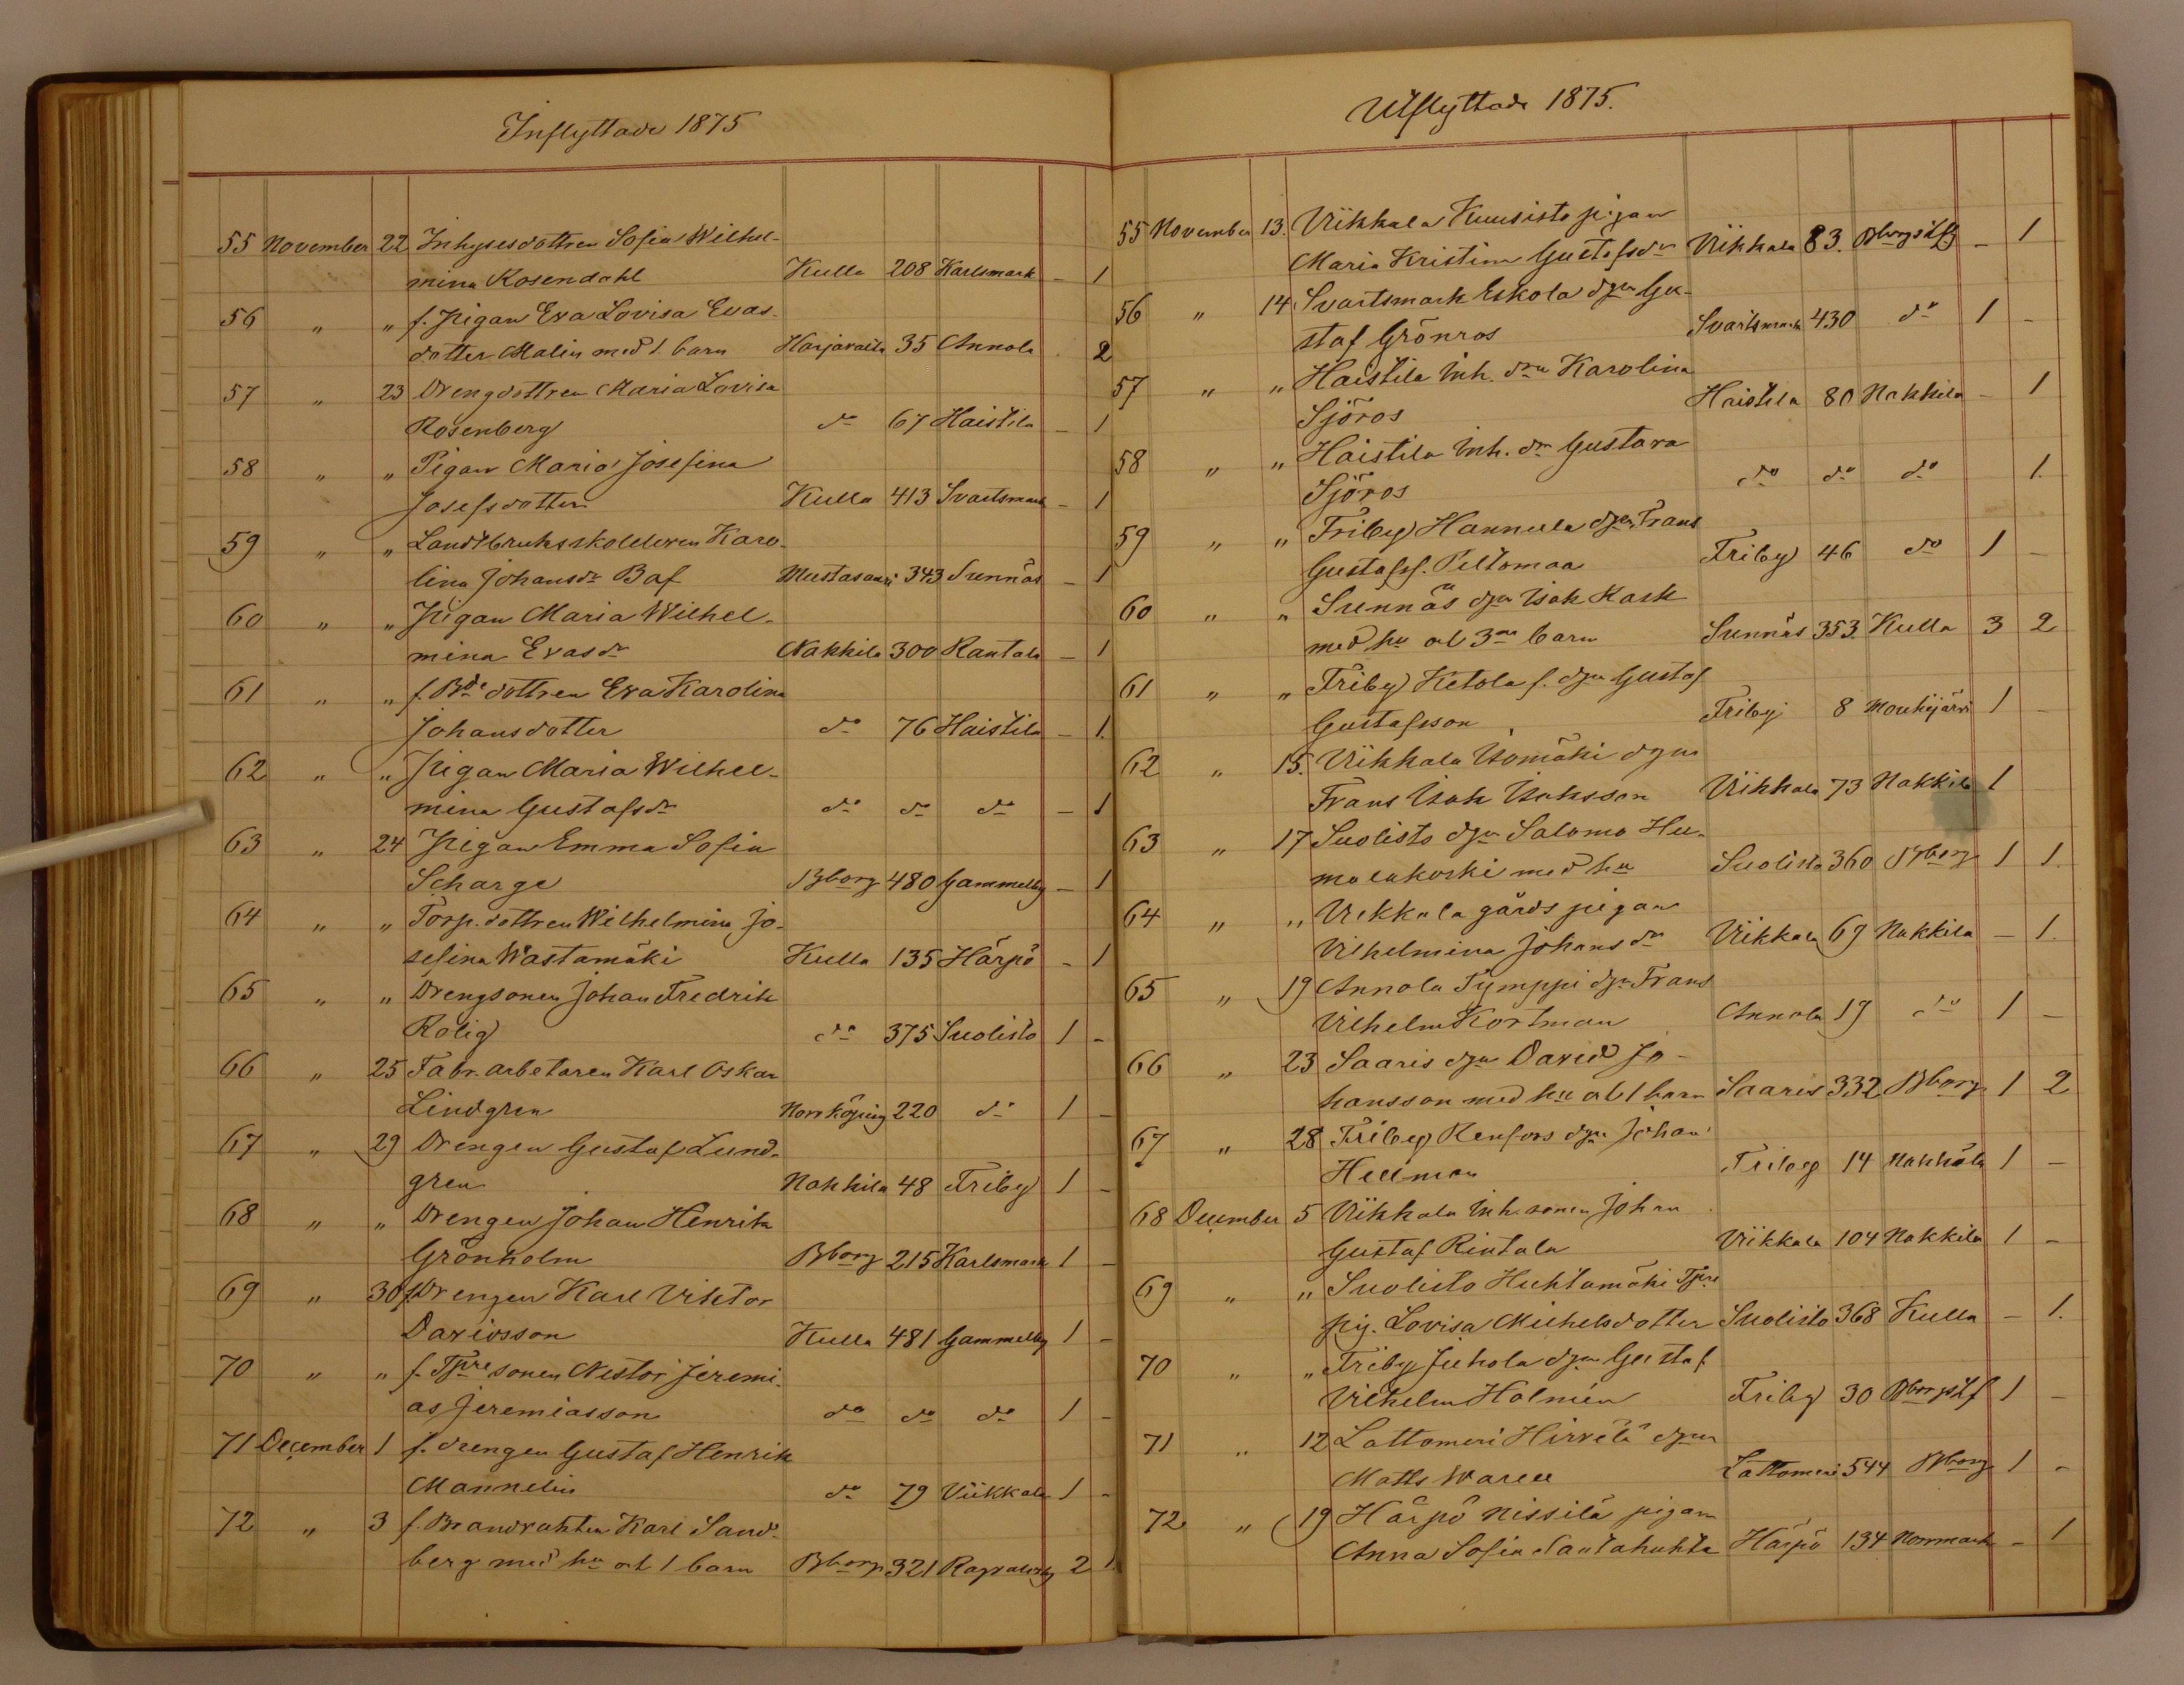 Inflyttade 1875
55 November 22 Inhysesdottren Sofia Wilhel-
mina Rosendahl Kulla 208 Karlsmark – 1
56 " " f. Pigan Eva Lovisa Evas-
dotter Malin med 1 barn Harjavalta 35 Annola 2
57 " 23 Drengdottren Maria Lovisa
Rosenberg do 67 Haistila – 1
58 " " Pigan Maria Josefina
Josefsdotter Kulla 413 Svartsmark – 1
59 " " Landtbruks Karo-
lina Johansdr Baf Mustasaari 343 Sunnäs – 1
60 " " Pigan Maria Wilhel-
mina Evasdr Nakkila 300 Rantala – 1
61 " " f. Bde dottren Eva Karolina
Johansdotter do 76 Haistila – 1.
62 " " Pigan Maria Wilhel-
mina Gustafsdr do do do – 1
63 " 24 Pigan Emma Sofia
Scharge Bborg 480 Gammelby – 1
64 " " Torp. dottren Wilhelmina Jo-
sefina Wastamäki Kulla 135 Härpö – 1
65 " " Drengsonen Johan Fredrik
Rolig do 375 Suolisto 1 –
66 " 25 Fabr. arbetaren Karl Oskar
Lindgren Norrköping 220 do 1 –
67 " 29 Drengen Gustaf Lund-
gren Nakkila 48 Friby 1 –
68 " " Drengen Johan Henrik
Grönholm Bborg 215 Karlsmark 1 –
69 " 30 f. Drengen Karl Viktor
Davidsson Kulla 481 Gammelby 1 –
70 " " f. Tpre sonen Nestor Jeremi-
as Jeremiasson do do do 1 –
71 December 1 f. drengen Gustaf Henrik
Mannelin do 79 Viikkala 1 –
72 " 3 f. Brandvakten Karl Sand-
berg med hu och 1 barn Bborg 321 Ragvaldsby 2 1
Utflyttade 1875.
55 November 13. Viikkala Kuusisto pigan
Maria Kristina Gustafsdr Viikkala 83. Bborgs lf – 1
56 " 14 Svartsmark Eskola dgn Gu-
staf Grönros Svartsmark 430 do 1 –
57 " " Haistila Inh. drn Karolina
Sjöros Haistila 80 Nakkila – 1
58 " " Haistila Inh. dr Gustava
Sjöros do do do 1.
59 " " Friby Hannula dgn Frans
Gustafss. Peltomaa Friby 46 do 1 –
60 " " Sunnäs dgn Isak Kask
med hu och 3ne barn Sunnäs 353 Kulla 3 2
61 " " Friby Ketola f. dgn Gustaf
Gustafsson Friby 8 Mouhijärvi 1 –
62 " 15. Viikkala Isomäki dgn
Frans Isak Isaksson Viikkala 73 Nakkila 1
63 " 17 Suolisto dgn Salomo Hu-
malakoski med hu Suolisto 360 Bborg 1 1.
64 " " Viikkala gårds pigan
Vilhelmina Johansdr Viikkala 69 Nakkila – 1.
65 " 19 Annola Tymppi dgn Frans
Vilhelm Kortman Annola 19 do 1 –
66 " 23 Saaris dgn David Jo-
hansson med hu och 1 barn Saaris 332 Bborg 1 2
67 " 28 Friby Renfors dgn Johan
Hellman Friby 14 Nakkila 1 –
68 December 5 Viikkala Inh. sonen Johan
Gustaf Rintala Viikkala 104 Nakkila 1 –
69 " " Suolisto Huhtamäki Tpre
pig. Lovisa Michelsdotter Suolisto 368 Kulla – 1.
70 " " Friby Juhola dgn Gustaf
Vilhelm Holmén Friby 30 Bborgs lf 1 –
71 " 12 Lattomeri Hirvelä dgn
Matts Warell Lattomeri 544 Bborg 1 –
72 " 19 Härpö Nissilä pigan
Anna Sofia Santahuhta Härpö 134 Norrmark – 1